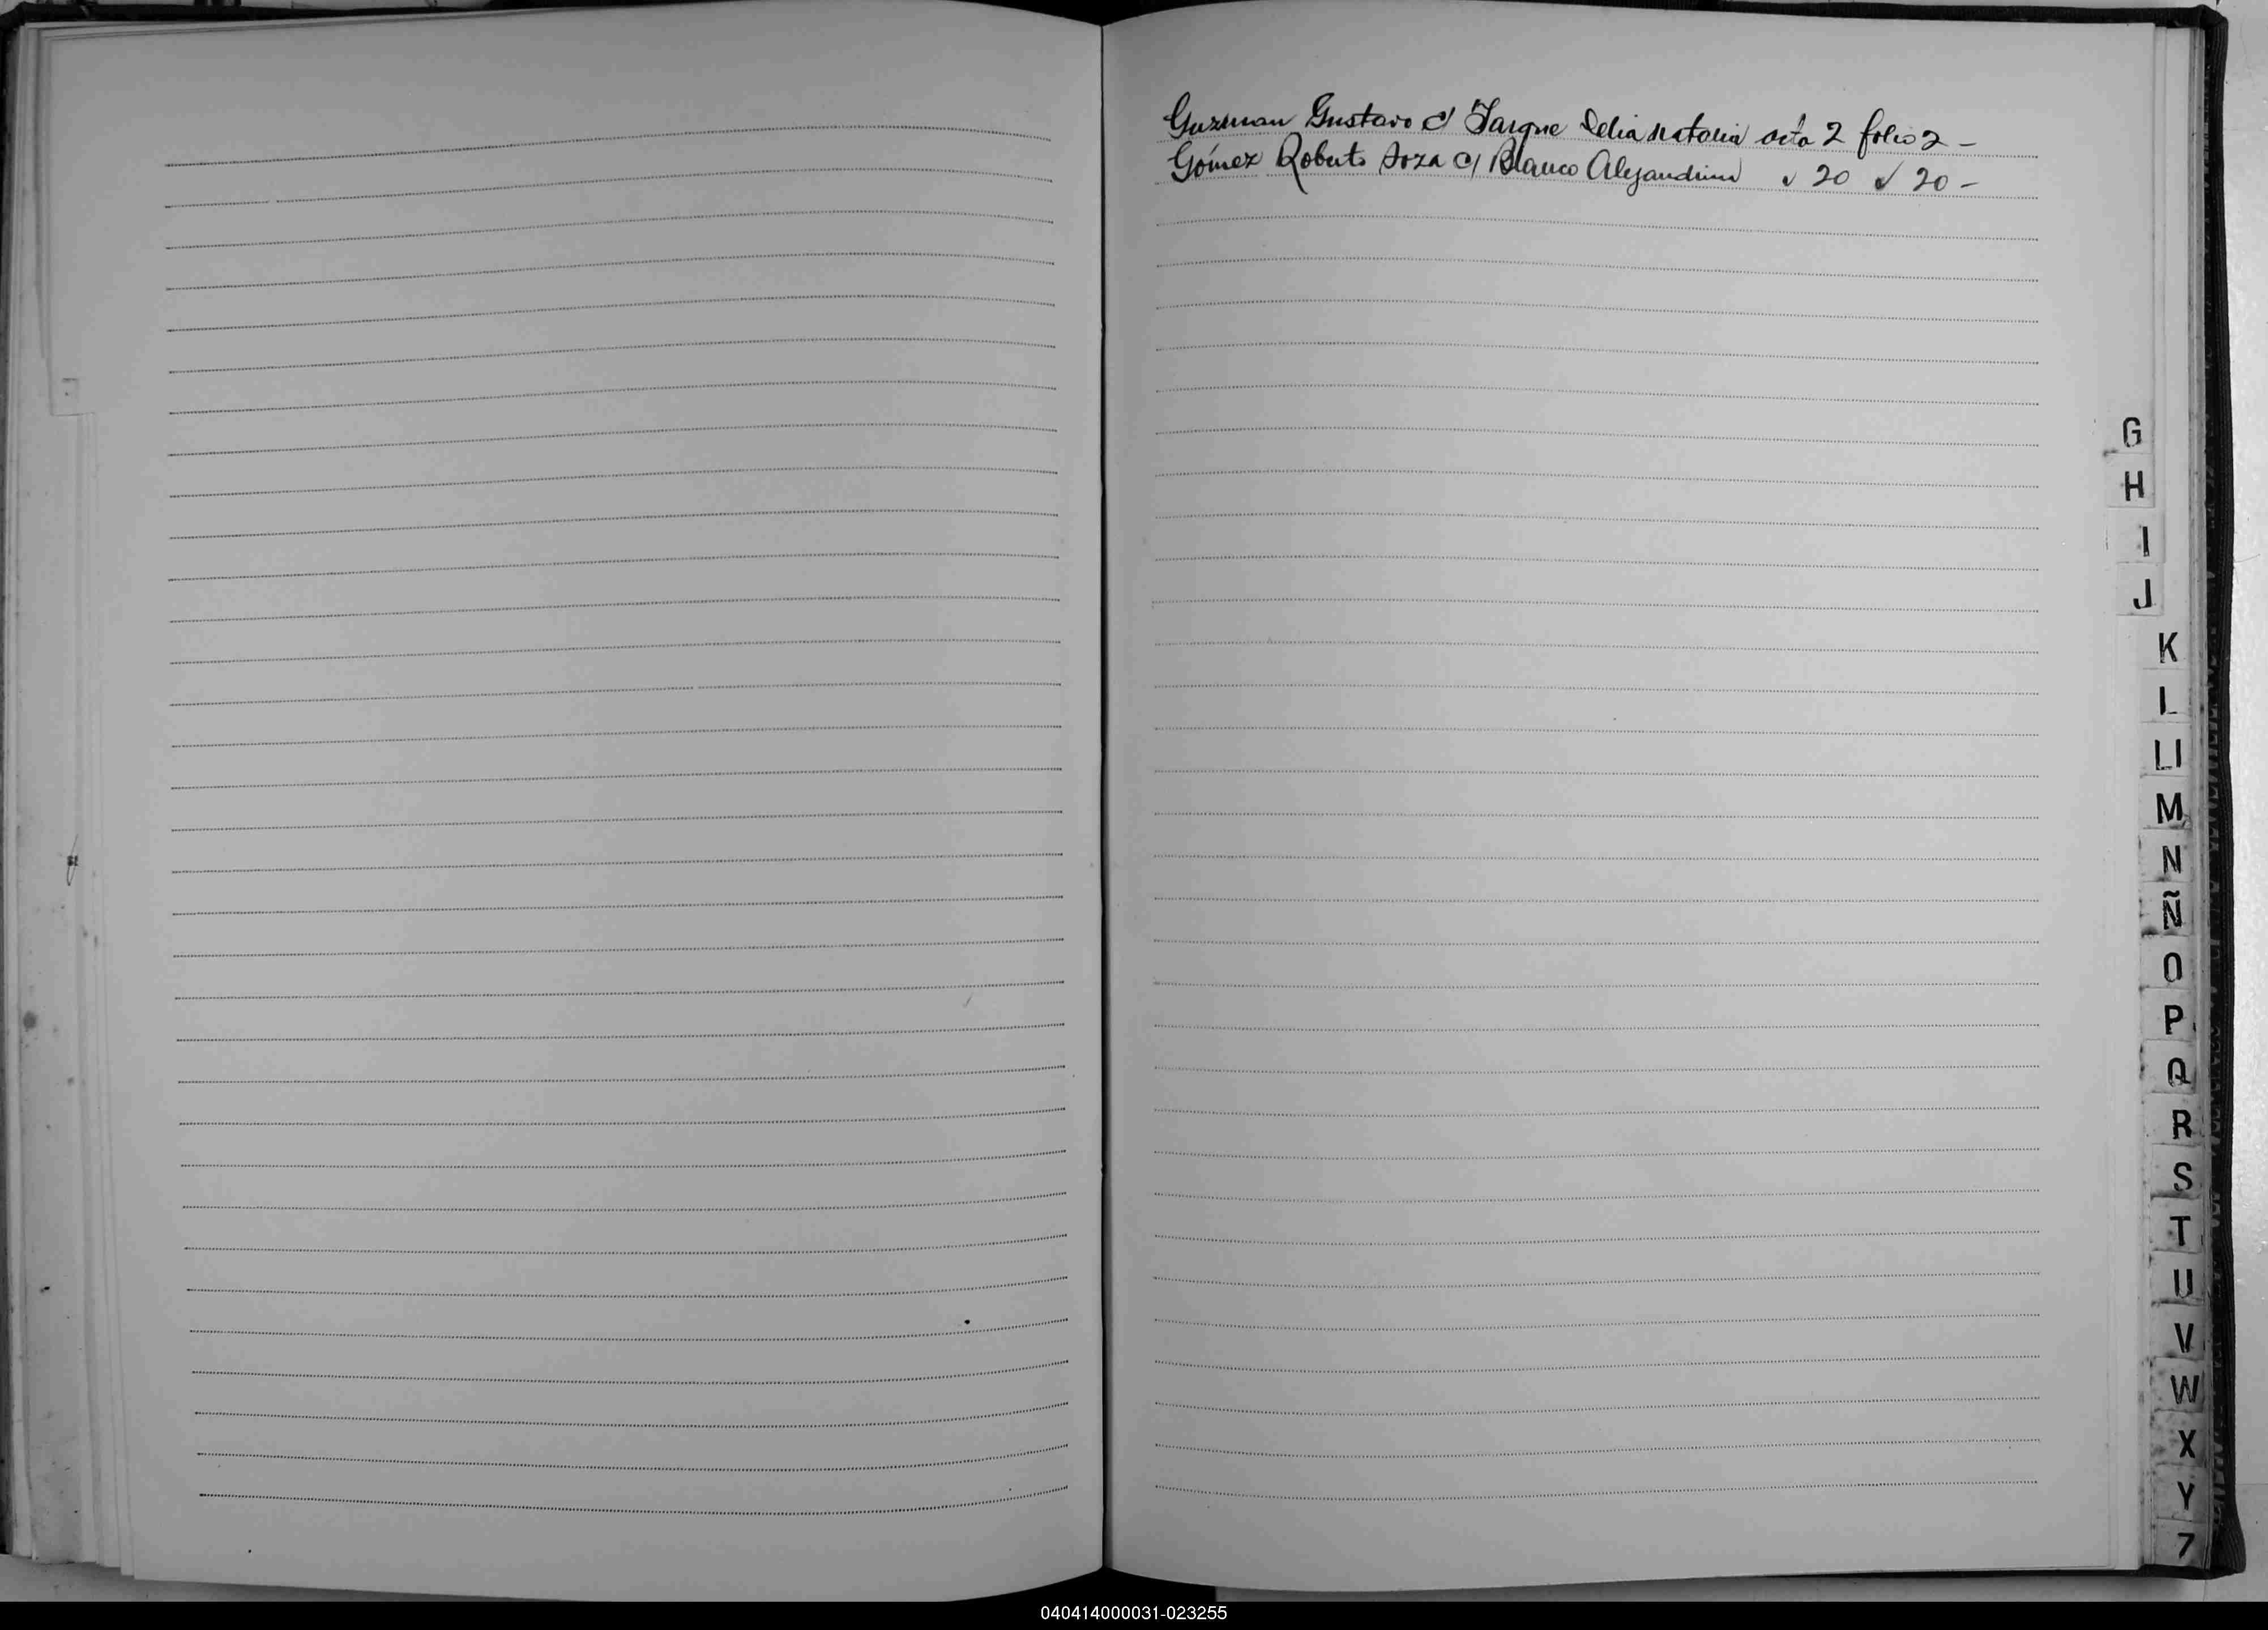 Guzman Gustavo c/ Farque Delia Natalia acta 2 folio 2 -
Gómez Roberto Soza c/ Blanco Alejandrina " 20 " 20 -
G
H
I
J
K
L
Ll
M
N
Ñ
O
P
Q
R
S
T
U
V
W
X
Y
Z
040414000031-023255